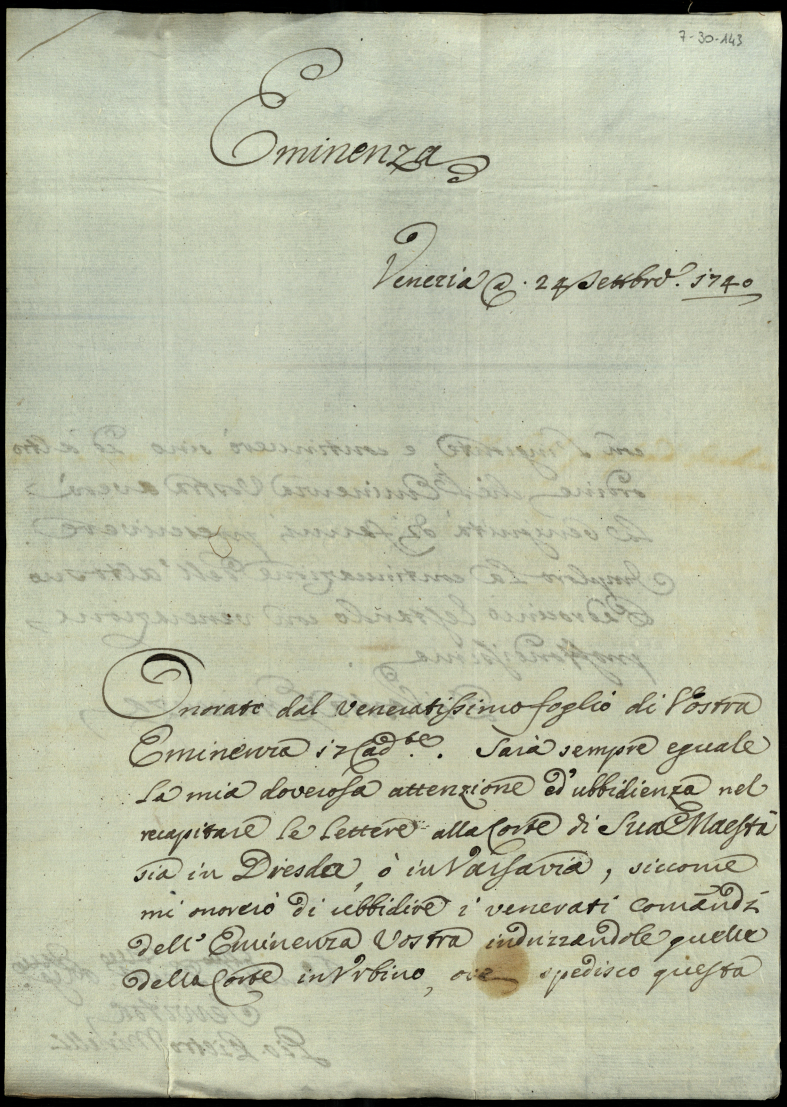 7-30-143
Eminenza
Venezia a. 24 Settbre. 1740
Onorato dal veneratissimo foglio di Vostra
Eminenza 17 cadte. Sarà sempre eguale
la mia doverosa attenzione ed' ubbidienza nel
recapitare le lettere alla Corte di Sua Maestà
sia in Dresda, ò in Varsavia, siccome
mi onorerò di ubbidire i venerati comandi
dell' Eminenza Vostra indrizzandole quelle
della Corte in Urbino, ove spedisco questa